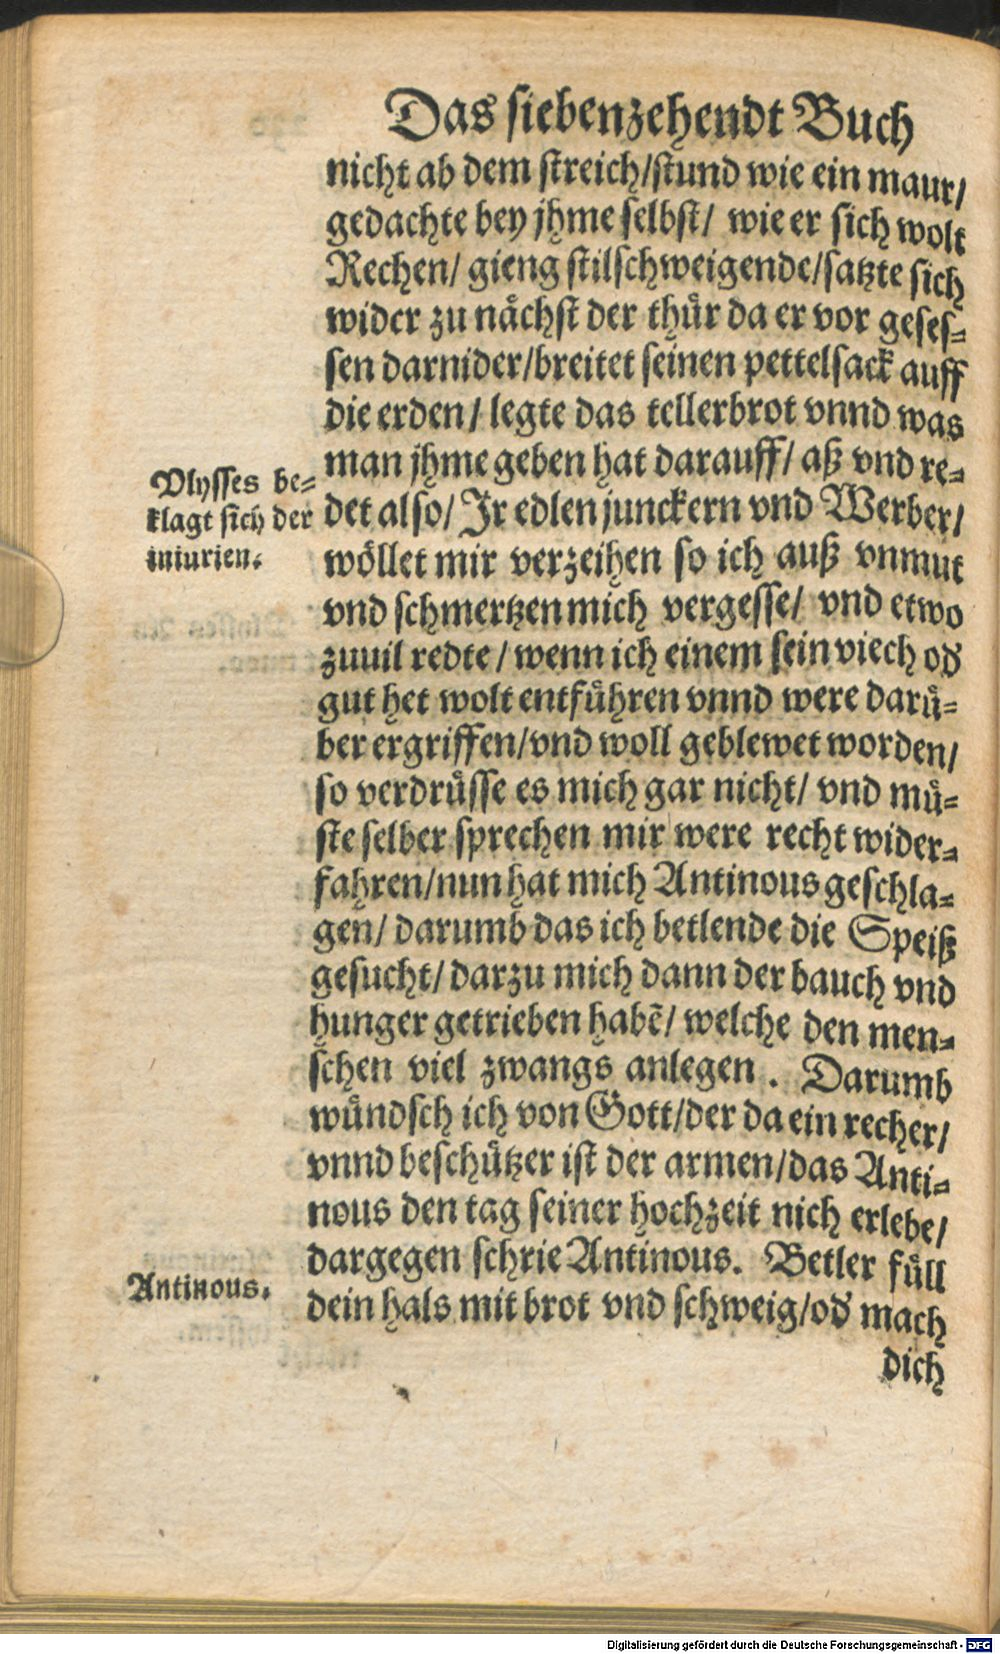 Das siebenzehendt Buch
nicht ab dem streich/stund wie ein maur/
gedachte bey jhme selbst/ wie er sich wolt
Rechen/ gieng stilschweigende/satzte sich
wider zu nåchst der thůr da er vor geses-
sen darnider/breitet seinen pettelsack auff
die erden/ legte das tellerbrot vnnd was
man jhme geben hat darauff/ aß vnd re-
Vlysses be-
klagt sich der
iniurien.
det also/ Jr edlen junckern vnd Werber/
wöllet mir verzeihen so ich auß vnmut
vnd schmertzen mich vergesse/ vnd etwo
zuuil redte/ wenn ich einem sein viech od
gut het wolt entführen vnnd were darü-
ber ergriffen/vnd woll geblewet worden/
so verdrüsse es mich gar nicht/ vnd mü-
ste selber sprechen mir were recht wider-
fahren/nun hat mich Antinous geschla-
gen/ darumb das ich betlende die Speiß
gesucht/ darzu mich dann der bauch vnd
hunger getrieben habẽ/ welche den men-
schen viel zwangs anlegen. Darumb
wündsch ich von Gott/der da ein recher/
vnnd beschützer ist der armen/das Anti-
nous den tag seiner hochzeit nich erlebe/
dargegen schrie Antinous. Betler füll
Antinous.
dein hals mit brot vnd schweig/od mach
dich
Digitalisierung gefördert durch die Deutsche Forschungsgemeinschaft - DFG